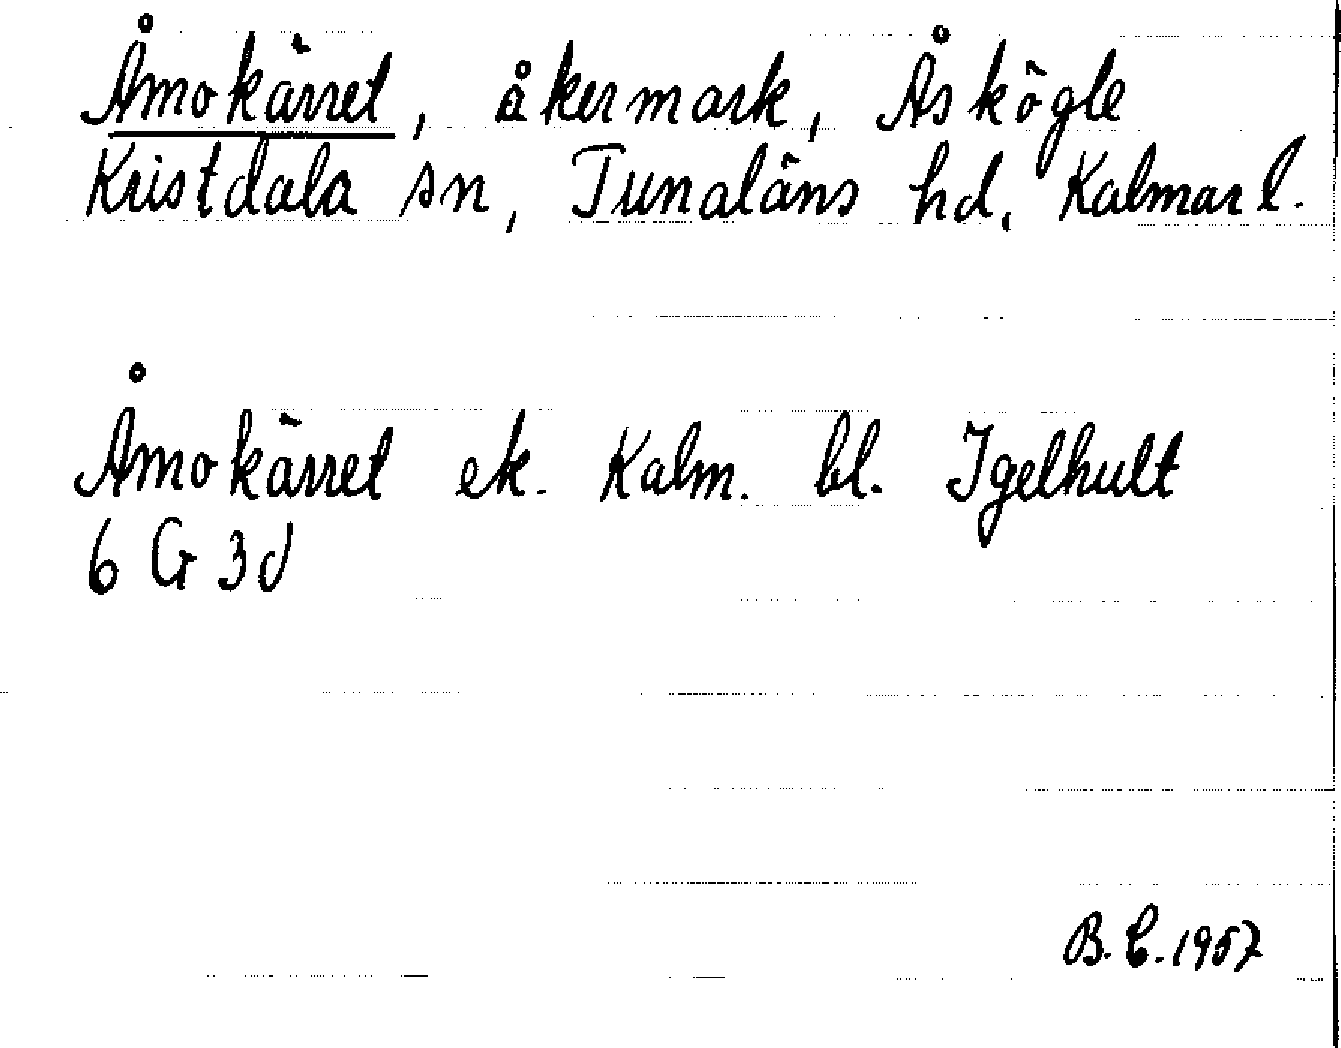 Åmokärret, åkermark, Åskögle
Kristdala sn, Tunaläns hd, Kalmar l.
Åmokärret ek. Kalm. bl. Igelhult
6 G 3d
B. C. 1957